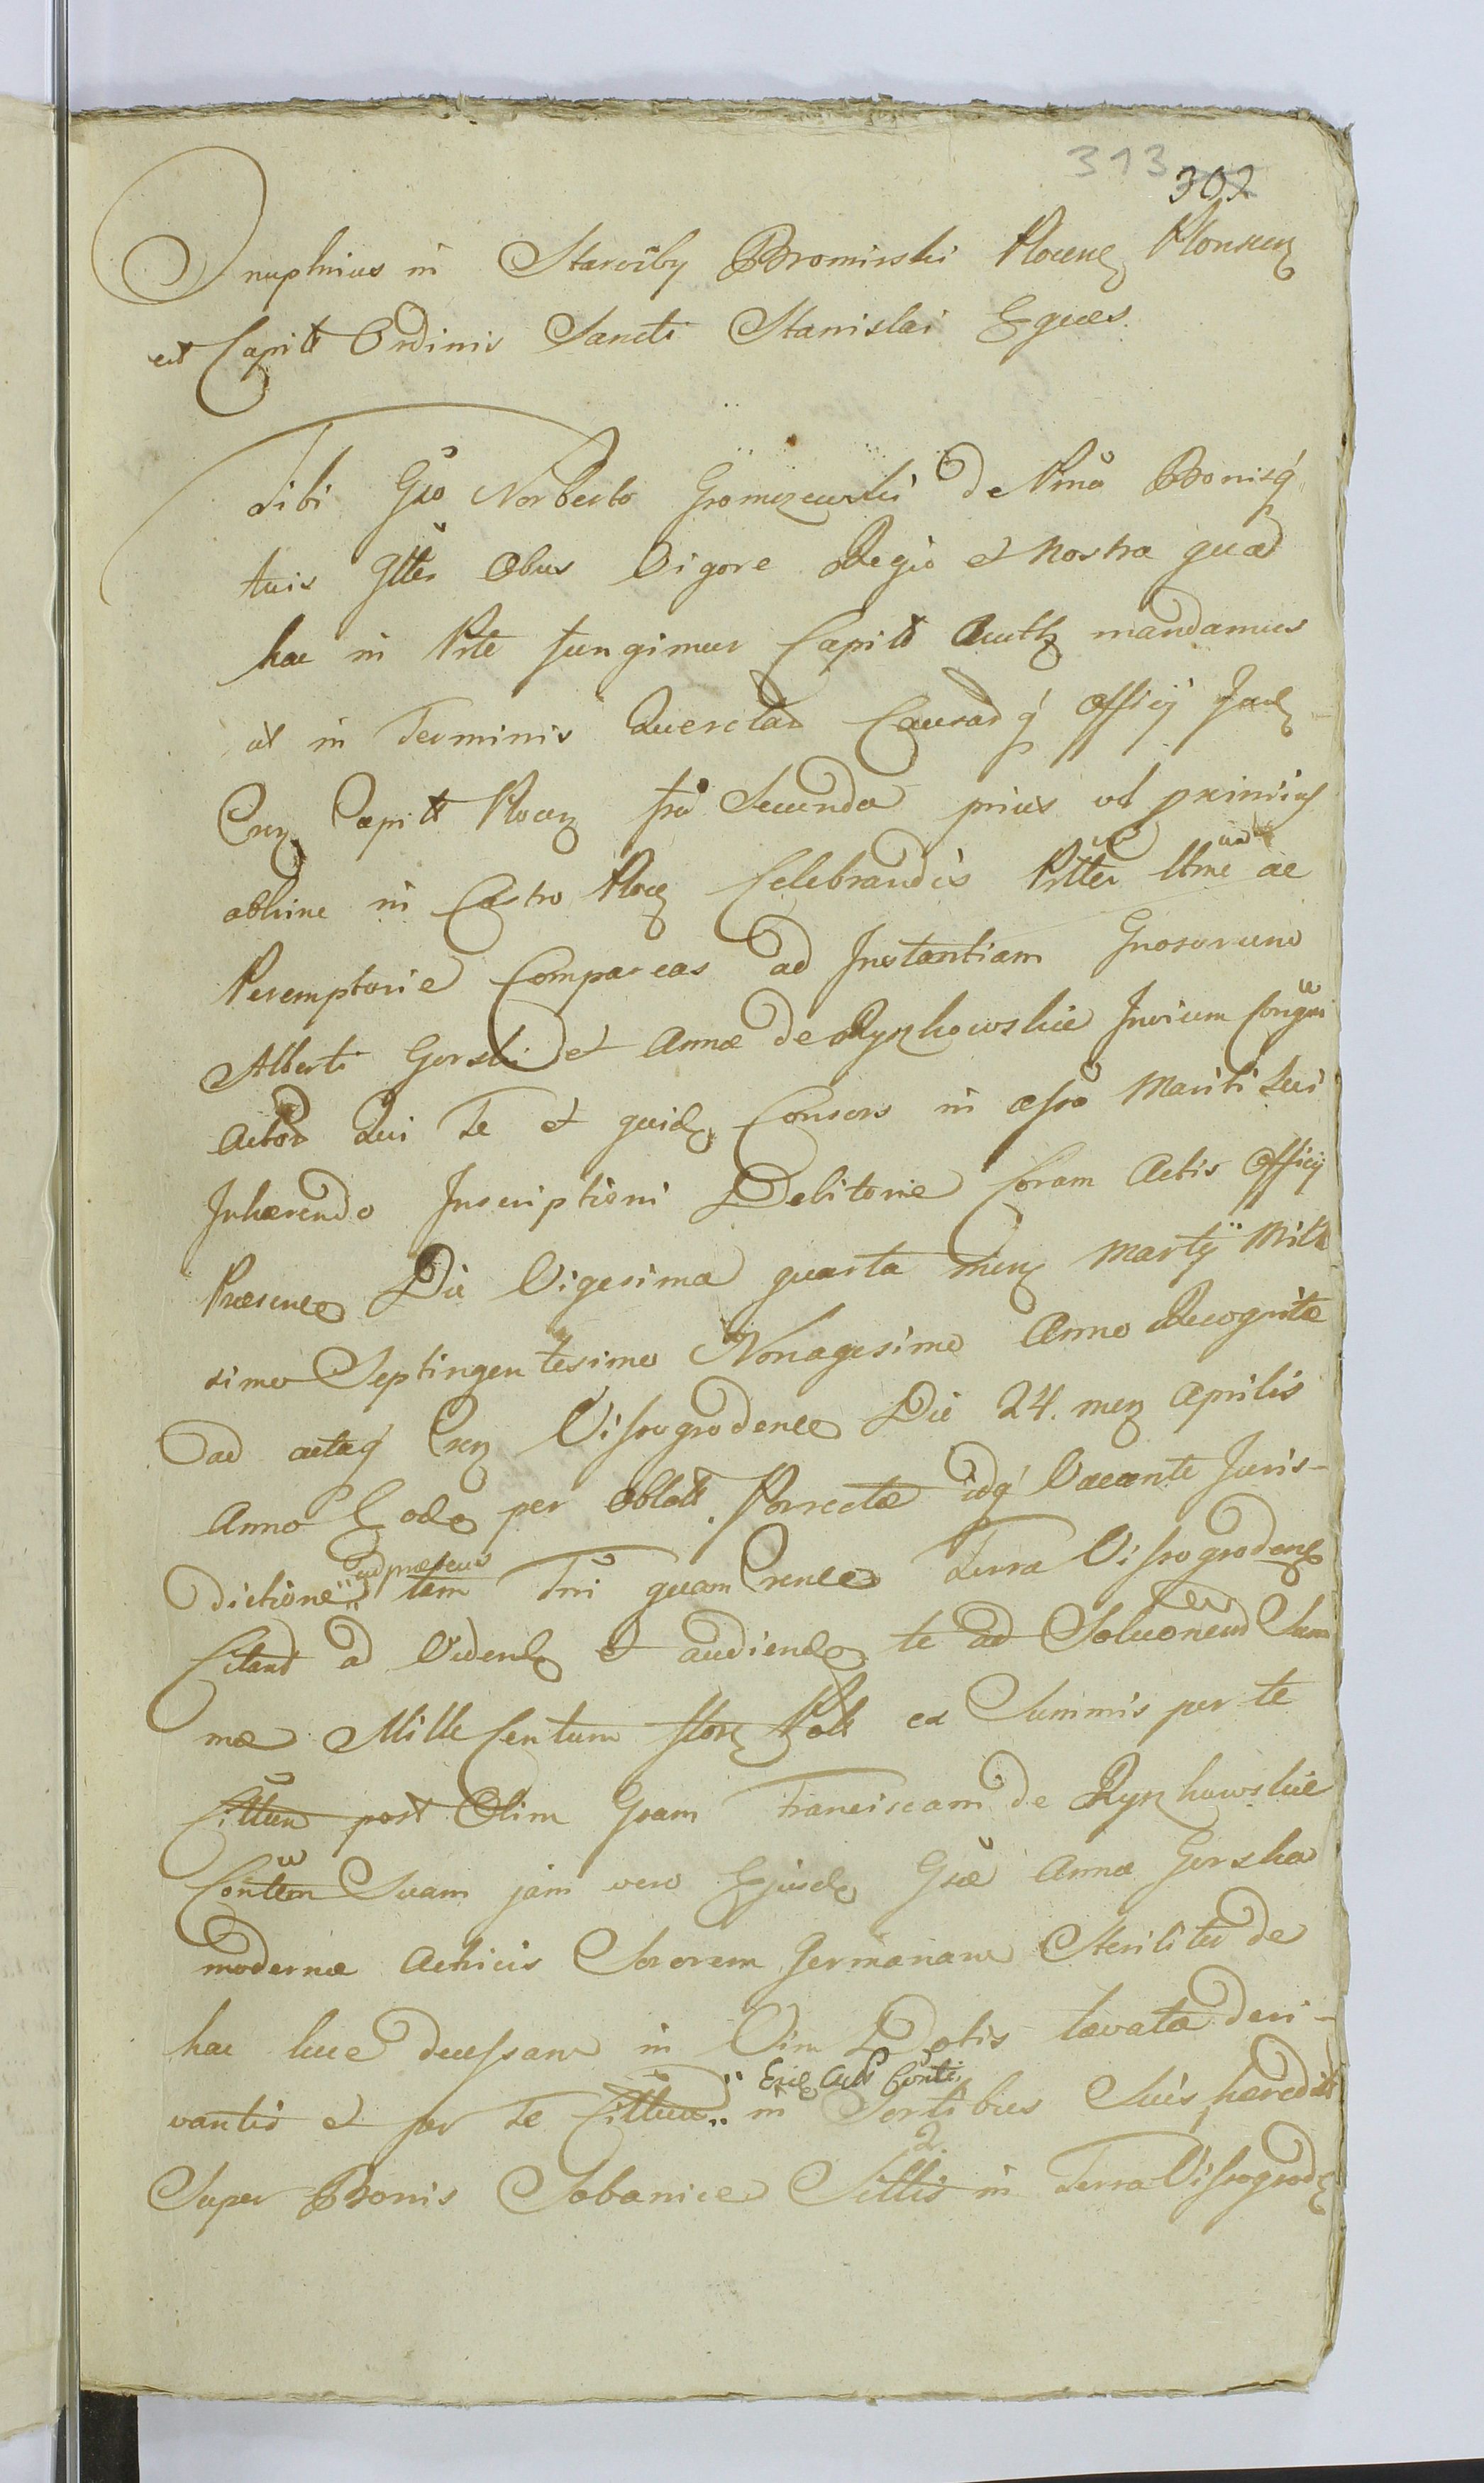 313
302
Onuphrius in Staroźby Bromirski Plocen Plonscen
ut Capitt Ordinis Sancti Stanislai Eques
Tibi Gso Norberto Gromczewski de Psona Bonisq
tuis Gtter Obus Vigore Regia et Nostra qua
hac in Pte fungimur Capitt Autte mandamus
ut in Terminis Querelar Causarq Officij Jud
Cren Capitt Plocen fra Secunda prius vel
abhinc in Castro Ploc Celebrandis Psttr ac
Peremptorie Compareas ad Instantiam Gnosorum
Alberti Gorski et Annæ de Ryzkowskie Invicem Congum
Actor Qui Te et quid Consors in assa Mariti sui
Inhærendo Inscriptioni Debitoriæ Coram Actis Officij
Præsenc Die Vigesima quarta menz Martij Mill
simo Septingentesimo Nonagesimo Anno Recognitæ
ad actaq Cren Vissogrodence Die 24. menz Aprilis
Anno Eod per Oblatt Porrectæ idq Vacante Juris-
dictione ad præsens tam Tri quam Crence Terra Vissogrodenc
Citand ad Vidend et audiend te ad Soluonem Sum
mæ Mille Centum flor Poll ex Summis per te
Cittum post Olim Gsam Franciscam de Ryzkowskie
Contem Suam jam vero Ejusd Gsæ Annæ Gorska
modernæ Actricis Sororem Germanam Steriliter de
hac luce decessam in Vim Dotis levata deri-
vantis et per Te Cittum in Sortibus Suis hæredit
Super Bonis Sobanice Sittis in Terra Vissogrod
2